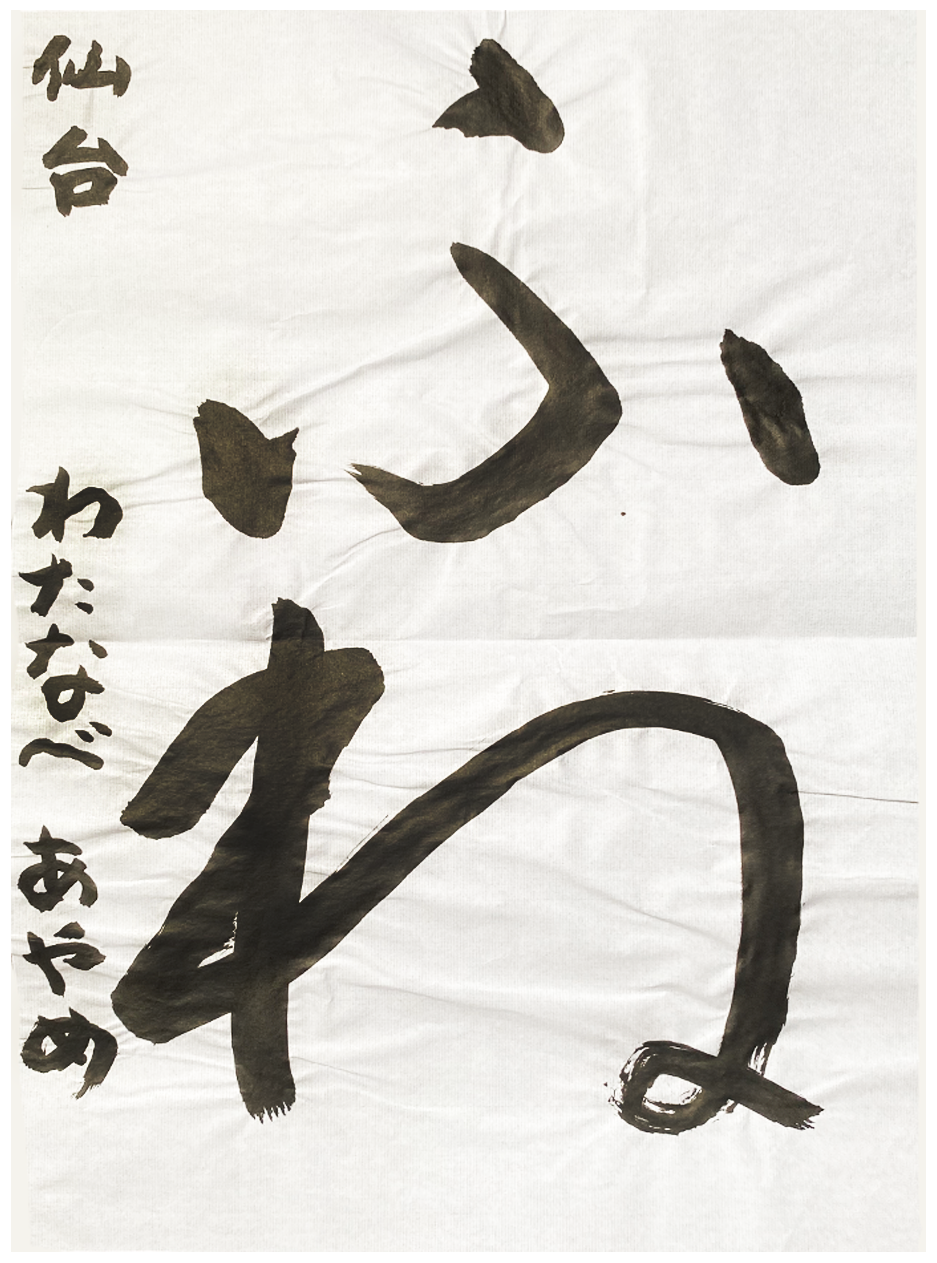 ふね
仙台 わたなべ あやめ